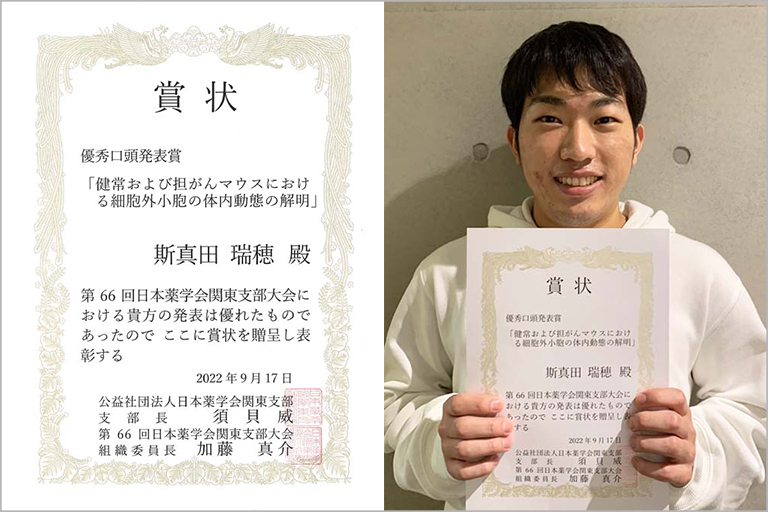 賞状
優秀口頭発表賞
「健常および担がんマウスにおけ
る細胞外小胞の体内動態の解明」
斯真田 瑞穂 殿
第 66 回日本薬学会関東支部大会に
おける貴方の発表は優れたもので
あったので ここに賞状を贈呈し表
彰する
2022 年 9 月 17 日
公益社団法人日本薬学会関東支部
支部長 須貝 威
第 66 回日本薬学会関東支部大会
組織委員長 加藤 真介
賞状
優秀口頭発表賞
「健常および担がんマウスにおけ
る細胞外小胞の体内動態の解明」
斯真田 瑞穂 殿
第 66 回日本薬学会関東支部大会に
おける貴方の発表は優れたもので
あったので ここに賞状を贈呈し表
彰する
2022 年 9 月 17 日
公益社団法人日本薬学会関東支部
支部長 須貝 威
第 66 回日本薬学会関東支部大会
組織委員長 加藤 真介